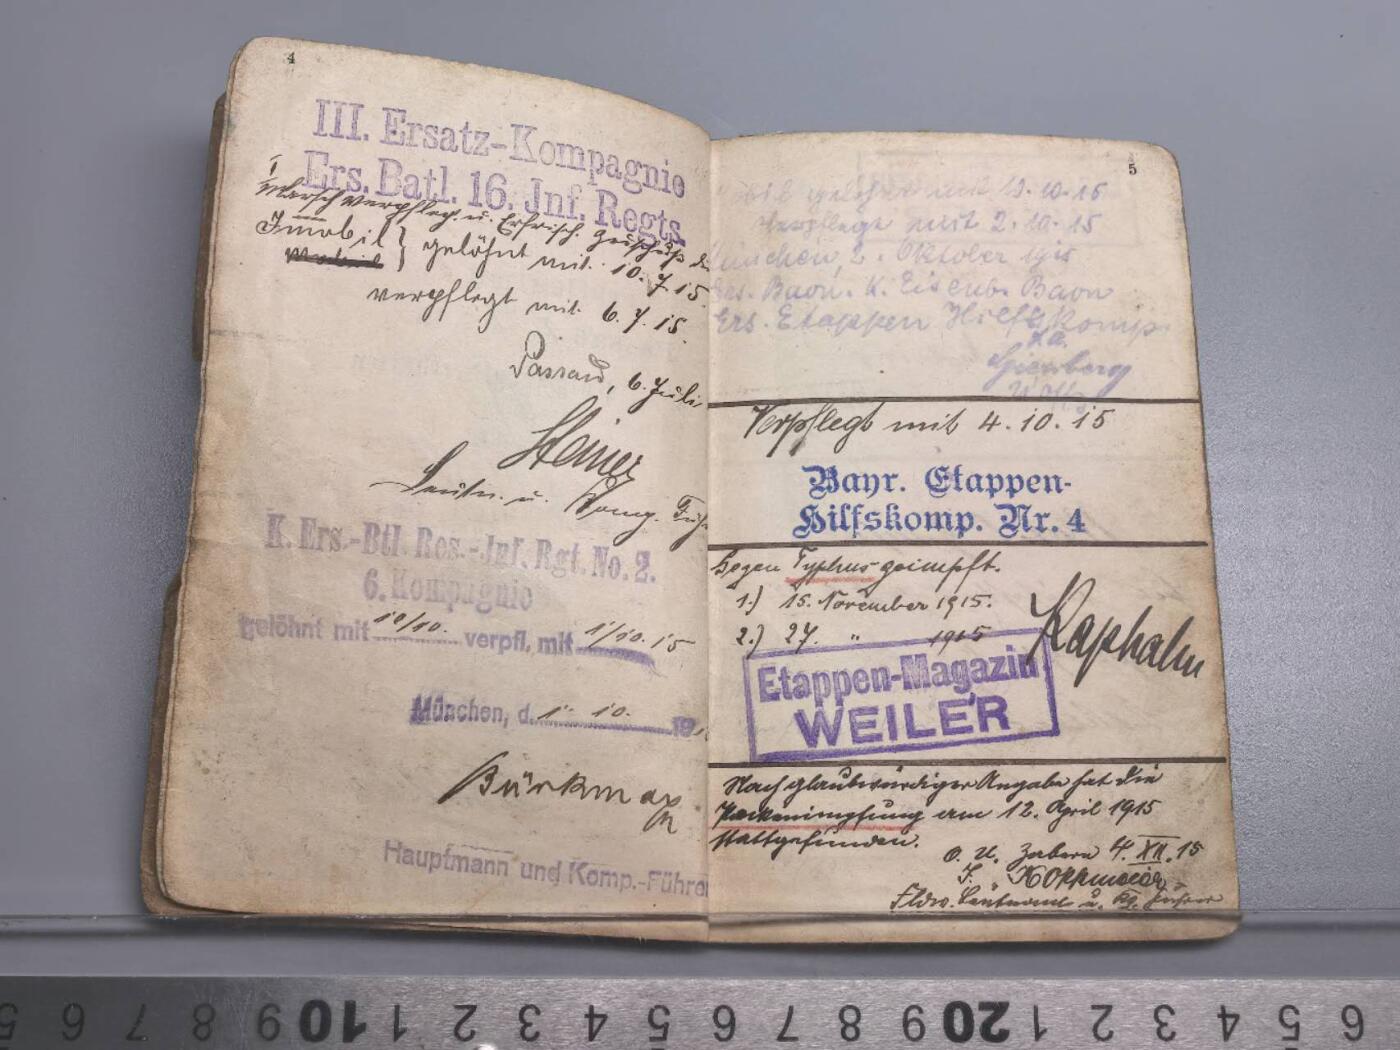 4
III. Ersatz-Kompagnie
Ers. Batl. 16. Inf. Regts.
Marsch verpfleg. u. Erfrisch.
Immobil } gelöhnt mit 10.7.15
verpflegt mit 6.7.15.
Passau, 6. Juli
Leutn. u. Komp. Füh
K. Ers.-Btl. Res.-Inf. Rgt. No. 2.
6. Kompagnie
gelöhnt mit 10/10. verpfl. mit 1/10.15
München, d. 1. 10. 19
Hauptmann und Komp.-Führer
5
mit 19.10.15
Verpflegt mit 2.10.15
München, 2. Oktober 1915
Ers. Baon. K. Eisenb. Baon
Ers. Etappen Hilfskomp.
Verpflegt mit 4.10.15
Bayr. Etappen-
Hilfskomp. Nr. 4
Gegen Typhus geimpft.
1.) 15. November 1915.
2.) 27. " 1915
Etappen-Magazin
WEILER
Nach glaubwürdiger Angabe hat die
Pockenimpfung am 12. April 1915
stattgefunden.
O. U. Zabern 4.XII.15
Fldw. Leutnant u. Führer
5 6 7 8 9 110 1 2 3 4 5 6 7 8 9 120 1 2 3 4 5 6